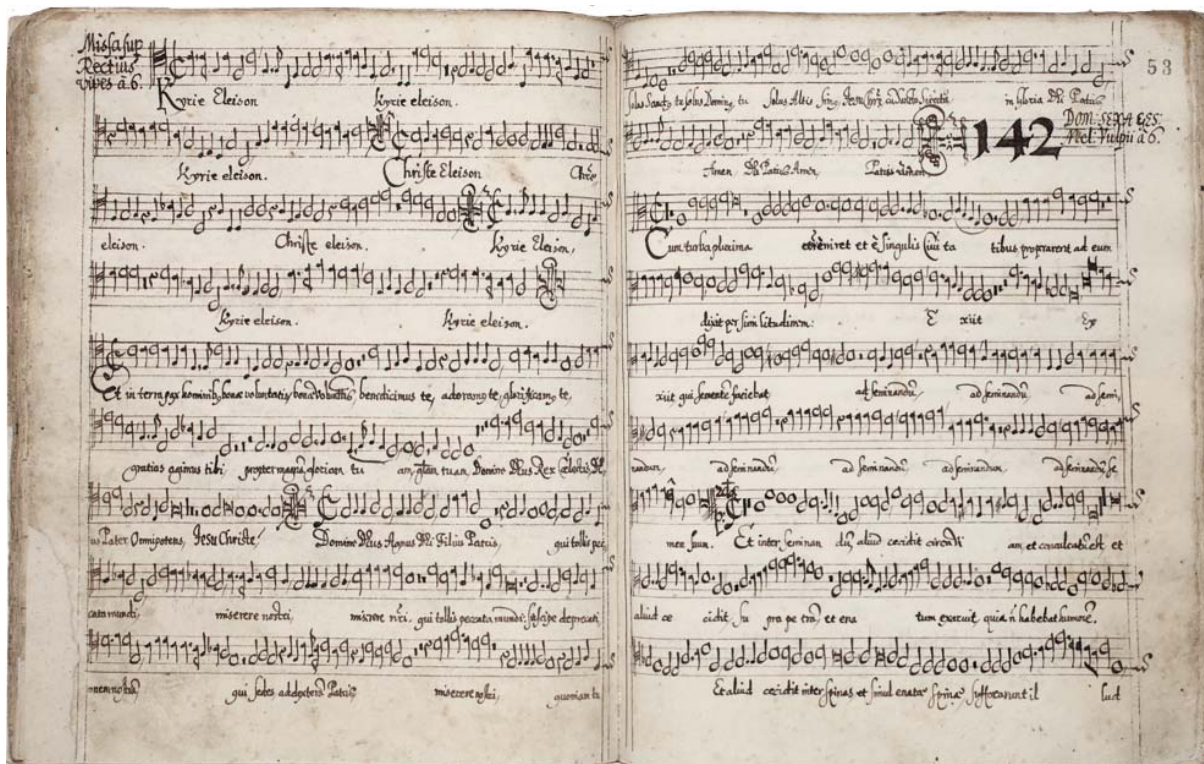 Missa sup
Rectius
vives à 6.
Kyrie Eleison Kyrie eleison.
Kyrie eleison. Christe Eleison Chrē
eleison. Christe eleison. Kyrie Eleison,
Kyrie eleison. Kyrie eleison.
Et in terra pax hominib, bonæ voluntatis, bonæ voluntatis, benedicimus te, adoramo te, glorificamo te,
gratias agimus tibi propter magnā gloriam tu am, glām tuam, Domine Deus Rex Cœlestis, De
us Pater Omnipotens, Jesu Christe, Domine Deus Agnus Dei Filius Patris, qui tollis pec
cata mundi, miserere nostri, miserere nri. qui tollis peccata mundi: suscipe deprecati
onem nostrā, qui sedes ad dexterā Patris, miserere nostri, quoniam tu
53
solus Sanct, tu solus Domin, tu solus Altis sim, Jesu in Gloria Dei Patris
Amen Dei Patris Amen, Patris Amen
142
DOM: SEXAGES:
Mel: Vulpii à 6.
Cum turba plurima et singulis ta tibus properarent ad eum
dixit per simi litudinem: E xiit Ex
xiit qui semente faciebat ad seminandū ad seminandū ad semi,
nandum, ad seminandū, ad seminandū, ad seminandum, ad seminandū se
men suum. Et inter seminan dū, aliud cecidit circa vi am, et conculcatū est et
aliud ce cidit su pra pe trā, et ena tum exaruit, quia ñ habebat humorē.
Et aliud cecidit inter spinas et simul enatæ spinæ suffocarunt il lud